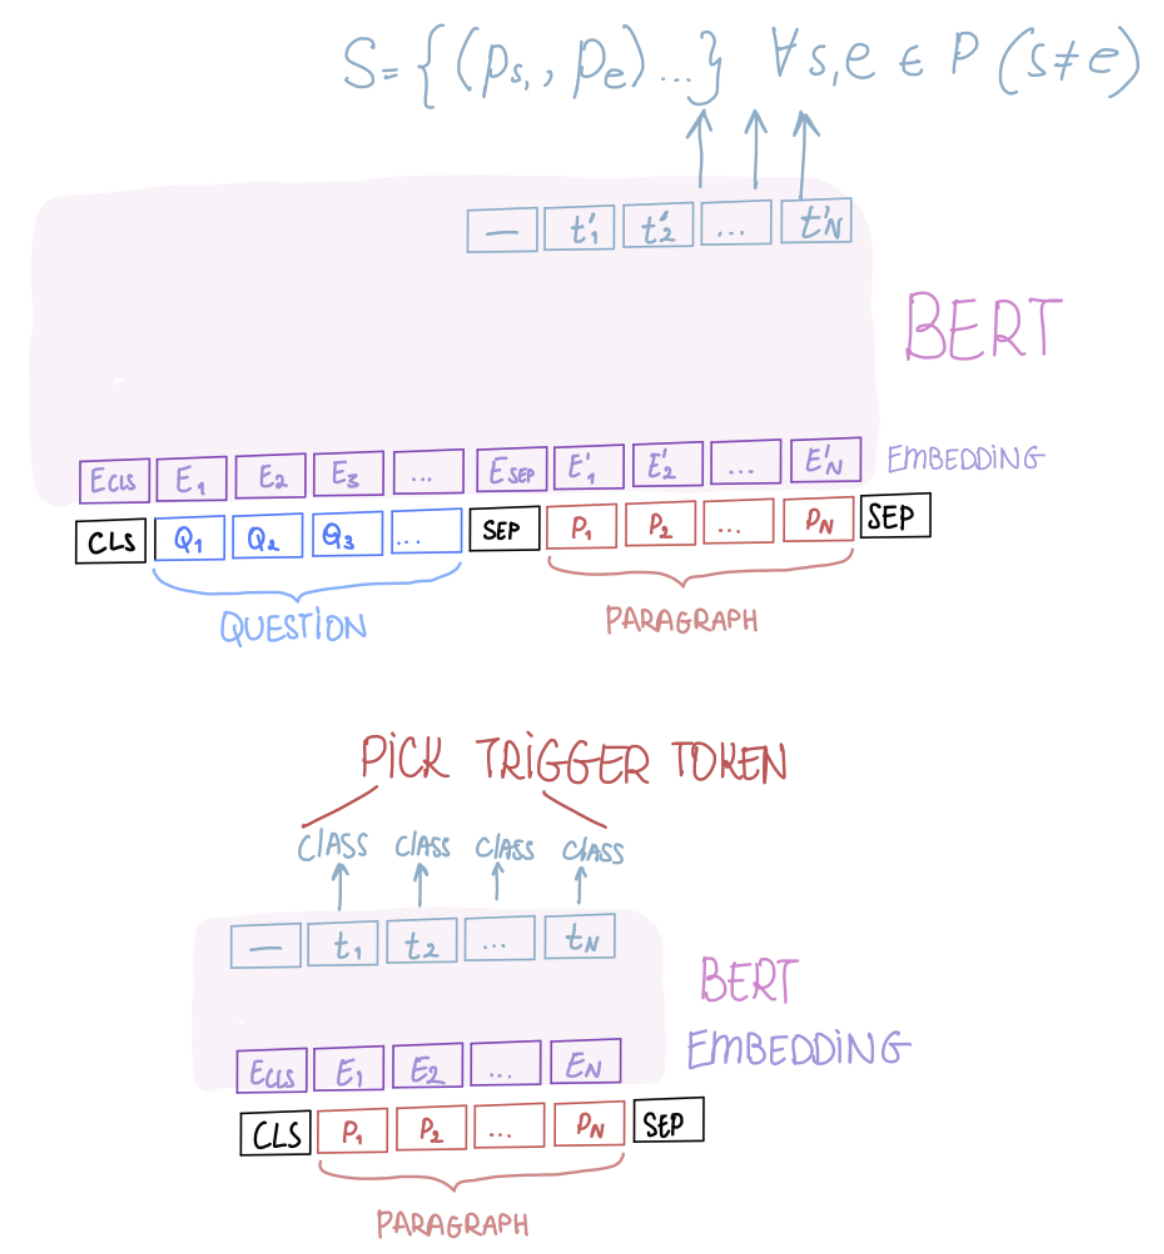 S={(Ps,, Pe)...} ∀s,e ∈ P (s≠e)
— t'1 t'2 ... t'N
BERT
ECLS E1 E2 E3 ... ESEP E'1 E'2 ... E'N EMBEDDING
CLS Q1 Q2 Q3 ... SEP P1 P2 ... PN SEP
QUESTION PARAGRAPH
PICK TRIGGER TOKEN
CLASS CLASS CLASS CLASS
— t1 t2 ... tN
BERT
ECLS E1 E2 ... EN EMBEDDING
CLS P1 P2 ... PN SEP
PARAGRAPH